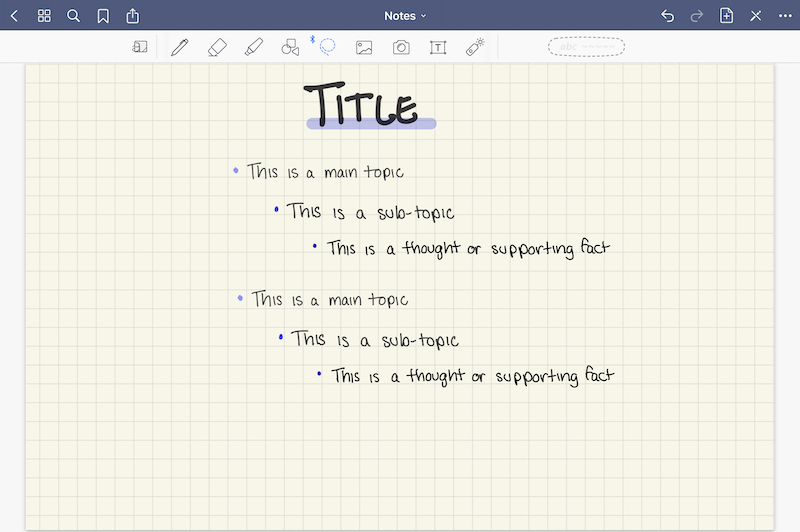 Notes
abc
TITLE
• This is a main topic
• This is a sub-topic
• This is a thought or supporting fact
• This is a main topic
• This is a sub-topic
• This is a thought or supporting fact